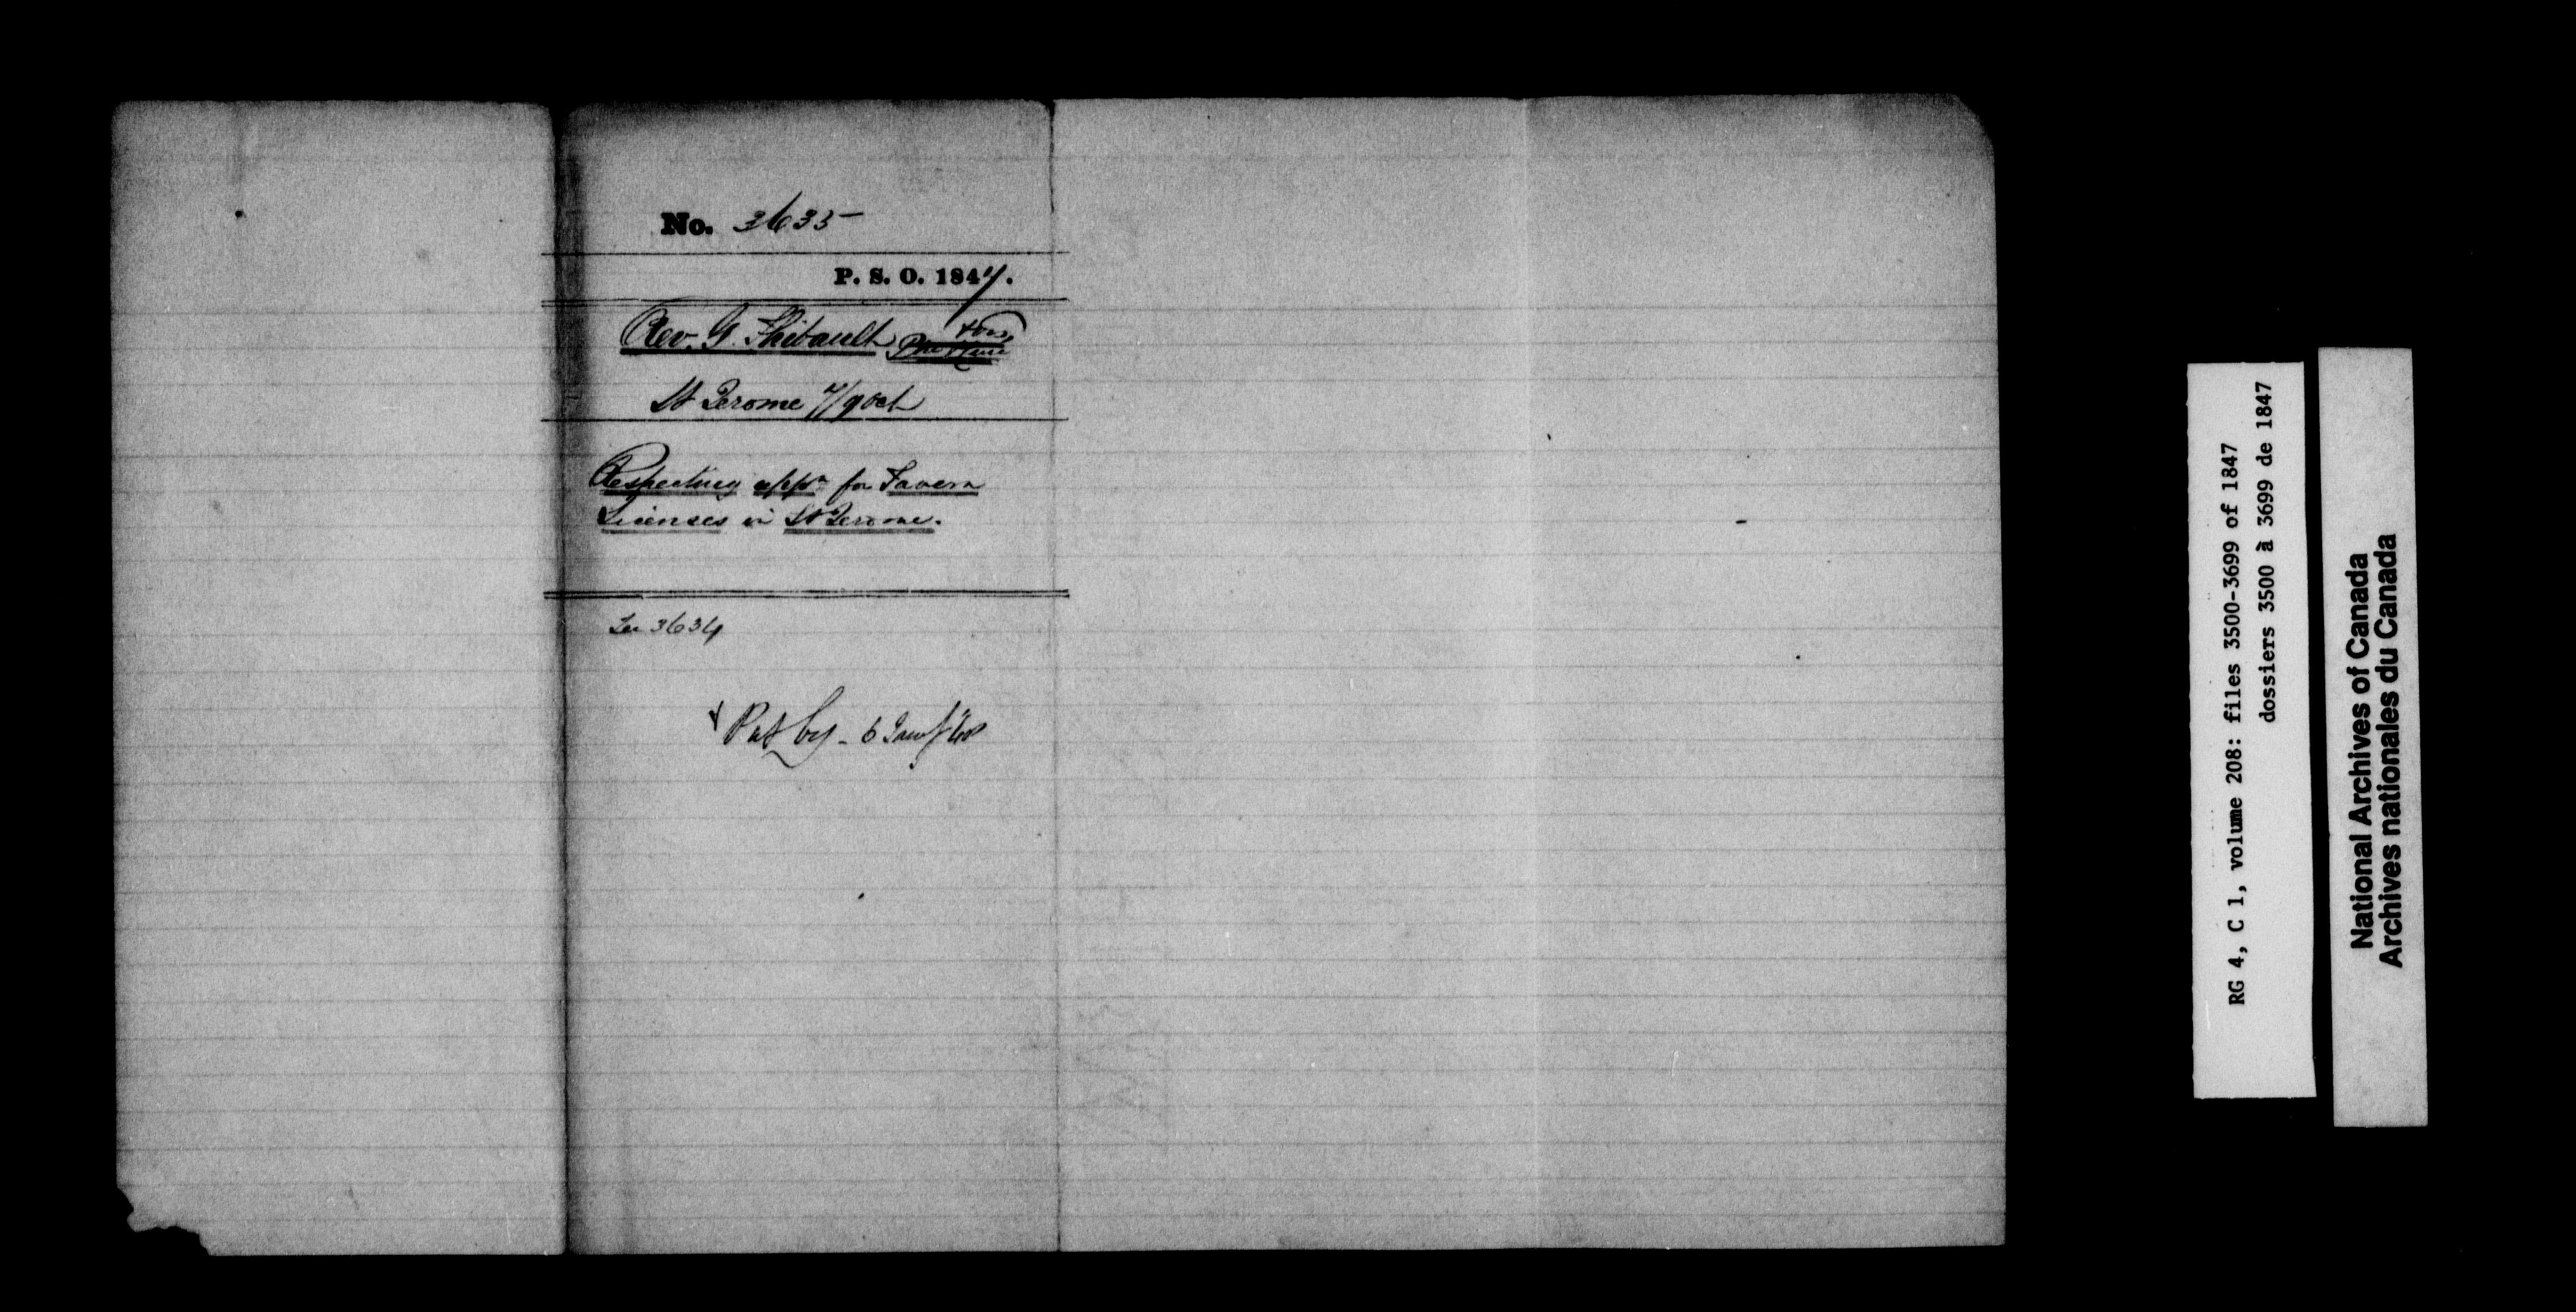 No. 3635
P. S. O. 1847.
Rev. G. Thibault
St Jerome 7/9 Oct
Respecting appn for Tavern
Licenses in St Jerome.
See 3634
Put by - 6 Jany / 48
RG 4, C 1, volume 208: files 3500-3699 of 1847
dossiers 3500 à 3699 de 1847
National Archives of Canada
Archives nationales du Canada